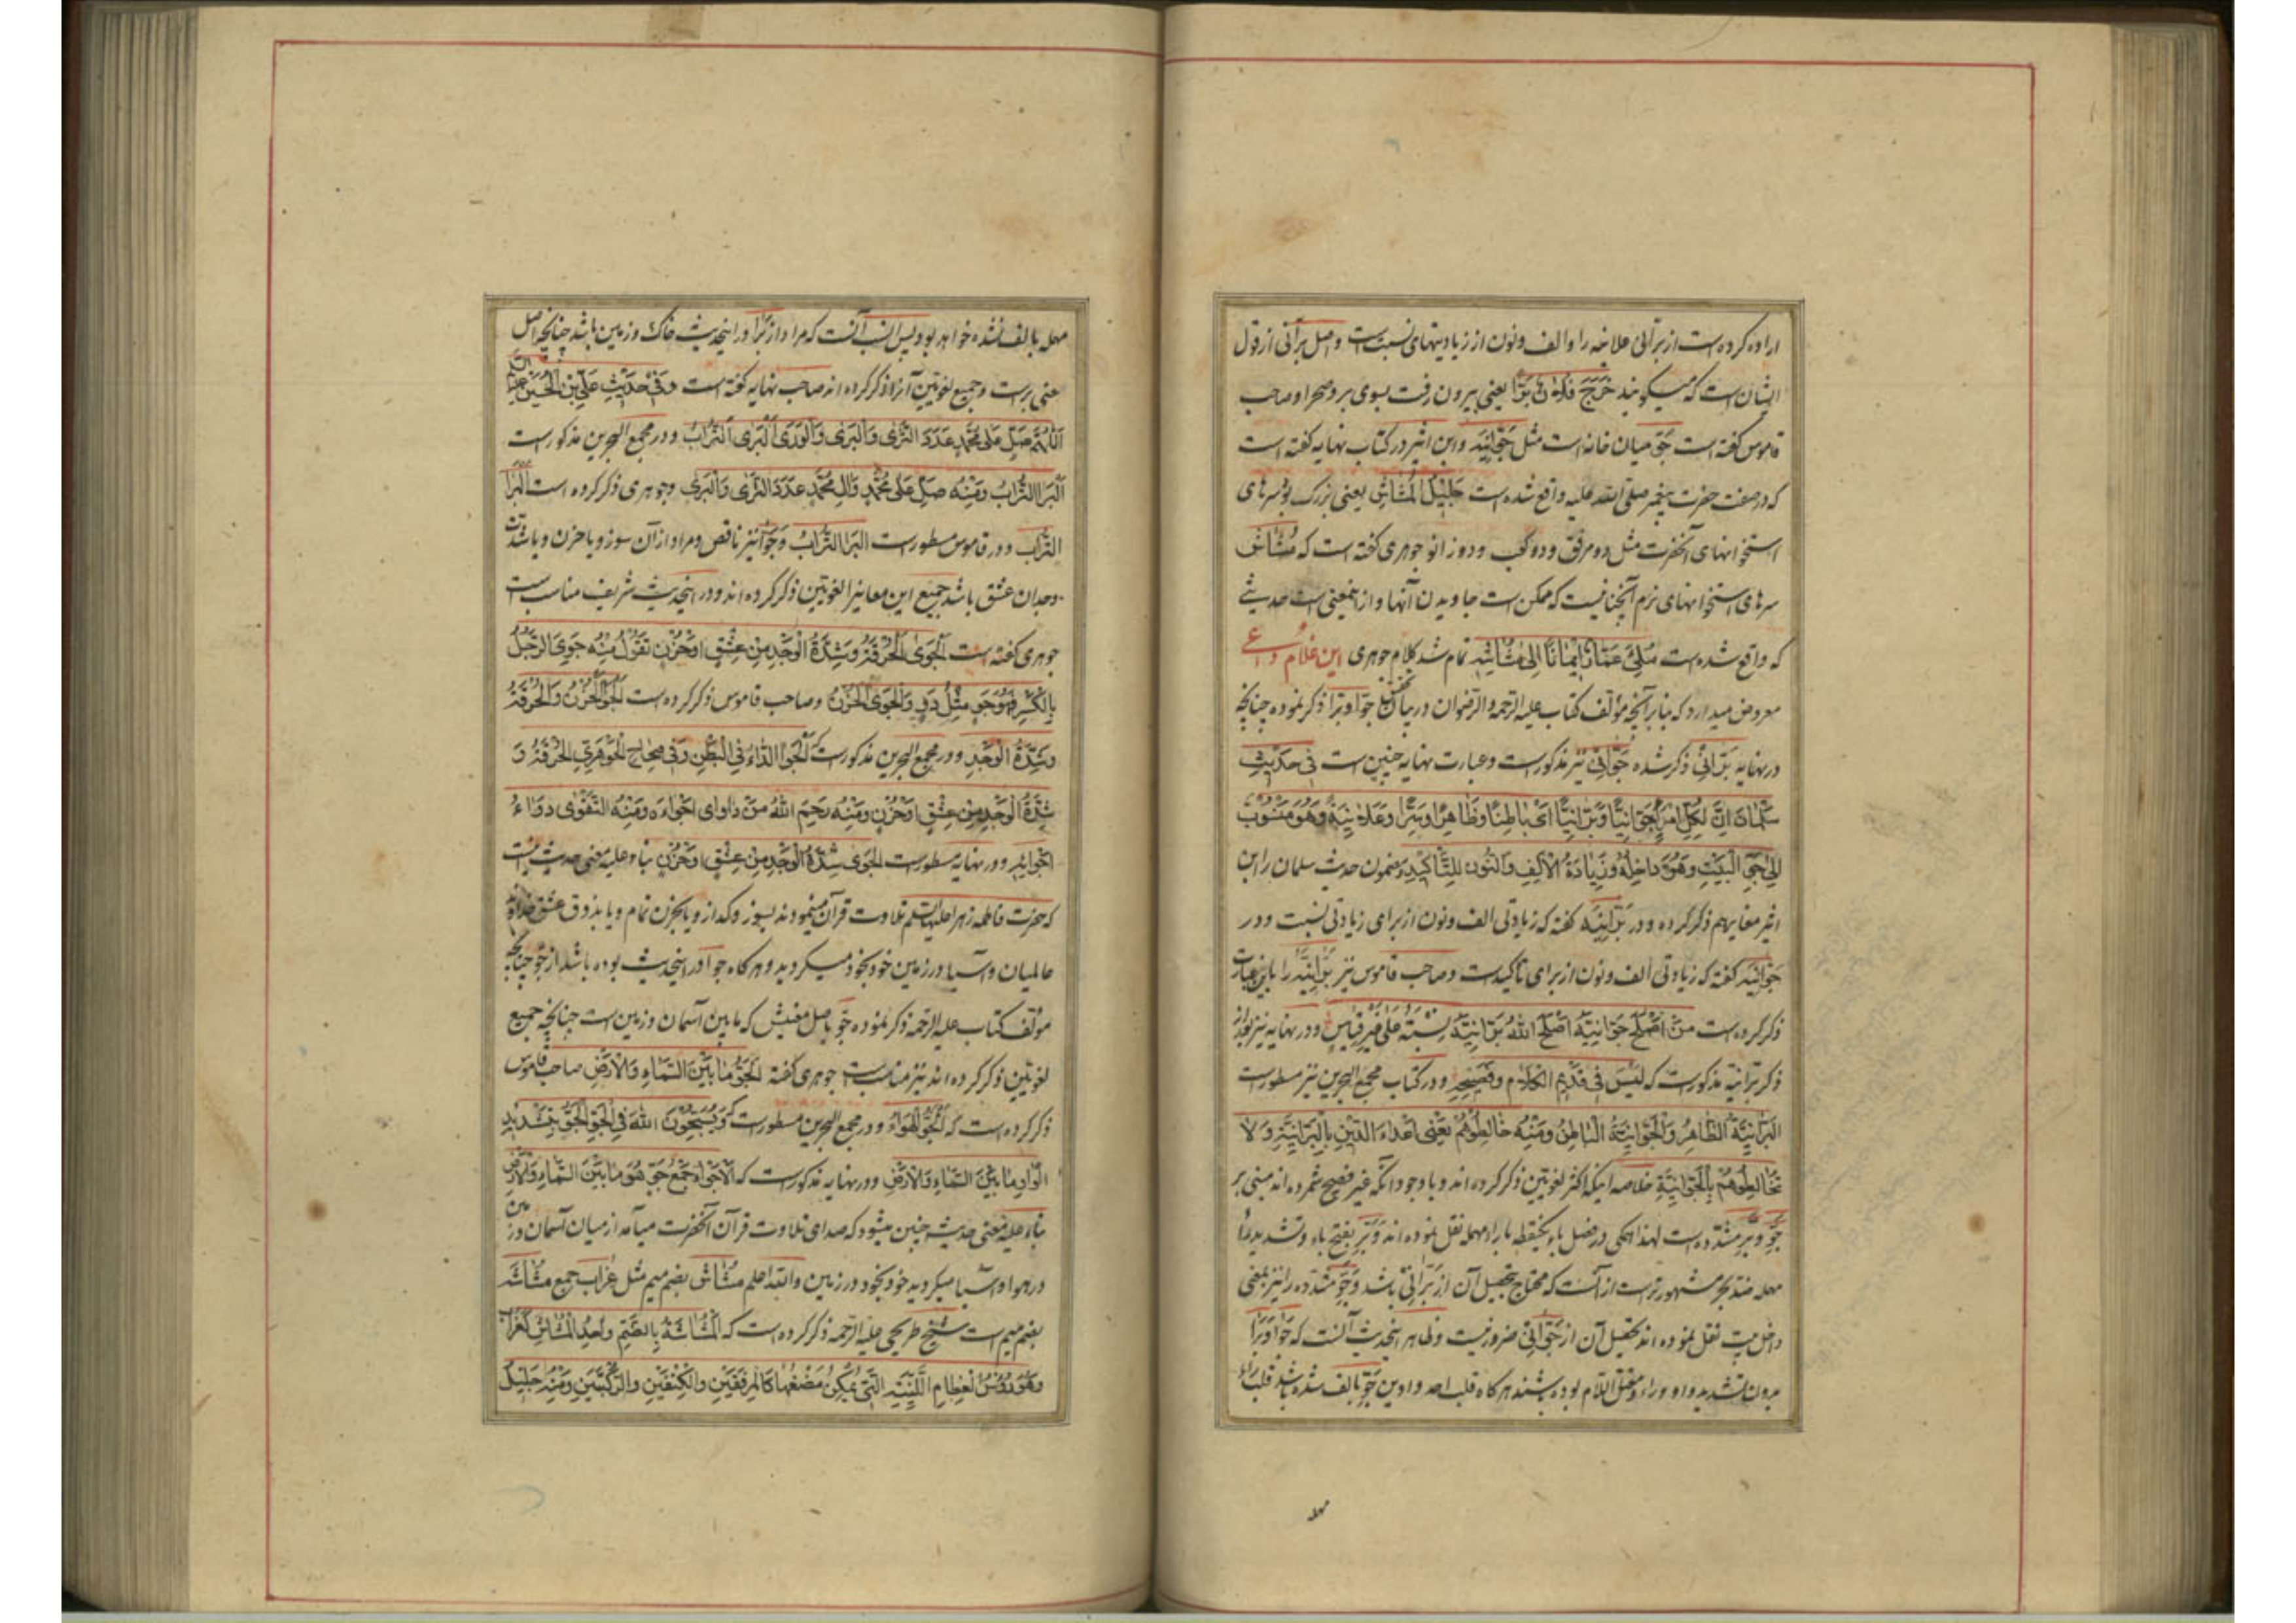 اراده کرده است از برانی علانیه را و الف و نون از زیادتیهای نسبتست و اصل برانی از قول
ایشان است که میگویند خَرَجَ فُلَانٌ بَرّاً یعنی بیرون رفت بسوی بر و صحرا و صاحب
قاموس گفته است جَوّ میان خانه است مثل جَوّانِیَه و ابن اثیر در کتاب نهایه گفته است
که در صفت حضرت پیغمبر صلی الله علیه واقع شده است جَلِیلُ الْمُشَاشِ یعنی بزرگ بود سرهای
استخوانهای آنحضرت مثل دو مرفق و دو کتف و دو زانو جوهری گفته است که مُشَاش
سرهای استخوانهای نرم آنچنانیست که ممکن است جاویدن آنها و از اینمعنی است حدیثی
که واقع شده است مُلِئَ عَمَّارٌ اِیمَاناً اِلیٰ مُشَاشِهِ تمام شد کلام جوهری این غلام داعی
معروض میدارد که بنابر آنچه مؤلف کتاب علیه الرحمه و الرضوان در بیان تحقیق جوّا و برّا ذکر نموده چنانچه
در نهایه بَرّانِی ذکر شده جَوّانِی نیز مذکور است و عبارت نهایه چنین است فی حَدِیثِ
سَلْمَانَ اِنَّ لِکُلِّ امْرِئٍ جَوَّانِیّاً وَبَرَّانِیّاً اَیْ بَاطِناً وَظَاهِراً وَسِرّاً وَعَلَانِیَةً وَهُوَ مَنْسُوبٌ
اِلیٰ جَوِّ الْبَیْتِ وَهُوَ دَاخِلُهُ وَزِیَادَةُ الْاَلِفِ وَالنُّونِ لِلتَّاکِیدِ مضمون حدیث سلمان را ابن
اثیر معا بهم ذکر کرده و در بَرّانِیَه گفته که زیادتی الف و نون از برای زیادتی نسبت و در
جَوّانِیَه گفته که زیادتی الف و نون از برای تاکید است و صاحب قاموس نیز بَرّانِیَه را باین عبارت
ذکر کرده است مَنْ اَصْلَحَ جَوَّانِیَّهُ اَصْلَحَ اللّٰهُ بَرَّانِیَّهُ نِسْبَةٌ عَلیٰ غَیْرِ قِیَاسٍ و در نهایه نیز بعد از
ذکر برانیه مذکور است که لَیْسَ فی قَدِیمِ الْکَلَامِ وَفَصِیحِهِ و در کتاب مجمع البحرین نیز مسطور است
الْبَرَّانِیَّةُ الظَّاهِرُ وَالْجَوَّانِیَّةُ الْبَاطِنُ وَمِنْهُ خَالِطُوهُمْ یَعْنِی اَعْدَاءَ الدِّینِ بِالْبَرَّانِیَّةِ وَلَا
تُخَالِطُوهُمْ بِالْجَوَّانِیَّةِ خلاصه اینکه اکثر لغویین ذکر کرده اند و با وجود آنکه غیر فصیح شمرده اند مبنی بر
جَوّ و بَرّ مشدّده است لهذا همکی در فصل باء یکنقطه با راء مهمله نقل نموده اند وَ بَرّ بفتح باء و تشدید راء
مهمله ضد بحر مشهورتر است از آنست که محتاج بتحصیل آن از بَرّانِیّ باشد وَ جَوّ مشدّده را نیز بمعنی
داخل بیت نقل نموده اند تحصیل آن از جَوّانِیّ ضرور نیست و ظاهر اینحدیث آنست که جَوَا وَ بَرَا
بدون تشدید واو و راء و معتل اللام بوده باشند هر کاه قلب احد واوین جَوّ بالف شده باشد قلب راء
مهله
مهله بالف نشده خواهد بود پس انسب آنست که مراد از بَرَا در اینحدیث خاک و زمین باشد چنانچه اصل
معنی برست و جمیع لغویین آنرا ذکر کرده اند صاحب نهایه گفته است وَفی حَدِیثِ عَلِیِّ بْنِ الْحُسَیْنِ علیه السلام
اَللّٰهُمَّ صَلِّ عَلیٰ مُحَمَّدٍ عَدَدَ الثَّریٰ وَالْبَریٰ وَالْوَریٰ اَلْبَریٰ اَلتُّرَابُ و در مجمع البحرین مذکور است
اَلْبَرَا التُّرَابُ وَمِنْهُ صَلِّ عَلیٰ مُحَمَّدٍ وَآلِ مُحَمَّدٍ عَدَدَ الثَّریٰ وَالْبَریٰ و جوهری ذکر کرده است اَلْبَرَا
التُّرَاب و در قاموس مسطور است الْبَرَا التُّرَابُ وَ جَوَا نیز ناقص و مراد از آن سوز و یا حزن و یا شدّت
وجدان عشق باشد جمیع این معانیرا لغویین ذکر کرده اند و در اینحدیث شریف مناسب است
جوهری گفته است اَلْجَوَیٰ الْحُرْقَةُ وَشِدَّةُ الْوَجْدِ مِنْ عِشْقٍ اَوْ حُزْنٍ تَقُولُ مِنْهُ جَوِیَ الرَّجُلُ
بِالْکَسْرِ فَهُوَ جَوٍ مِثْلُ دَوٍ وَالْجَوَی الْحُزْنُ و صاحب قاموس ذکر کرده است اَلْجَوَی الْحُزْنُ وَالْحُرْقَةُ
وَشِدَّةُ الْوَجْدِ و در مجمع البحرین مذکور است که اَلْجَوَا الدَّاءُ فِی الْبَطْنِ وَفی صِحَاحِ الْجَوْهَرِیِّ الْحُرْقَةُ وَ
شِدَّةُ الْوَجْدِ مِنْ عِشْقٍ اَوْ حُزْنٍ وَمِنْهُ رَحِمَ اللّٰهُ مَنْ دَاوَای اَجْوَاءَهُ وَمِنْهُ التَّقْوٰی دَوَاءُ
اَجْوَائِکُمْ و در نهایه مسطور است الْجَوَی شِدَّةُ الْوَجْدِ مِنْ عِشْقٍ اَوْ حُزْنٍ بناء علیه معنی حدیث اینست
که حضرت فاطمه زهرا علیها السلم تلاوت قرآن مینمودند بسوز و کداز و یا بحزن تمام و یا بذوق عشق خداوند
عالمیان و آسیا در زمین خود بخود میکردید و هر کاه جوا در اینحدیث بوده باشد از جوّ چنانچه
مؤلف کتاب علیه الرحمه ذکر نموده جَوّ باصل معنیش که ما بین آسمان و زمین است چنانچه جمیع
لغویین ذکر کرده اند نیز مناسب است جوهری گفته اَلْجَوُّ مَا بَیْنَ السَّمَاءِ وَالْاَرْضِ صاحب قاموس
ذکر کرده است که اَلْجَوُّ الْهَوَاءُ و در مجمع البحرین مسطور است که وَیُسَبِّحُونَ اللّٰهَ فِی الْجَوِّ الْجَوُّ بِتَشْدِیدِ
الْوَاوِ مَا بَیْنَ السَّمَاءِ وَالْاَرْضِ و در نهایه مذکور است که اَلْاَجْوَاءُ جَمْعُ جَوٍّ هُوَ مَا بَیْنَ السَّمَاءِ وَالْاَرْضِ
بناء علیه معنی حدیث چنین میشود که صدای تلاوت قرآن آنحضرت میآمد از میان آسمان و زمین
در هوا و آسیا میکردید خود بخود در زمین و الله اعلم مُشَاش بضم میم مثل غراب جمع مُشَاشَه
بضم میم است شیخ طریحی علیه الرحمه ذکر کرده است که اَلْمُشَاشَةُ بِالضَّمِّ وَاحِدُ الْمُشَاشِ کَغُرَابٍ
وَهُوَ رُؤُسُ الْعِظَامِ اللَّیِّنَةِ الَّتِی یُمْکِنُ مَضْغُهَا کَالْمِرْفَقَیْنِ وَالْکِتْفَیْنِ وَالرُّکْبَتَیْنِ وَمِنْهُ جَلِیلُ